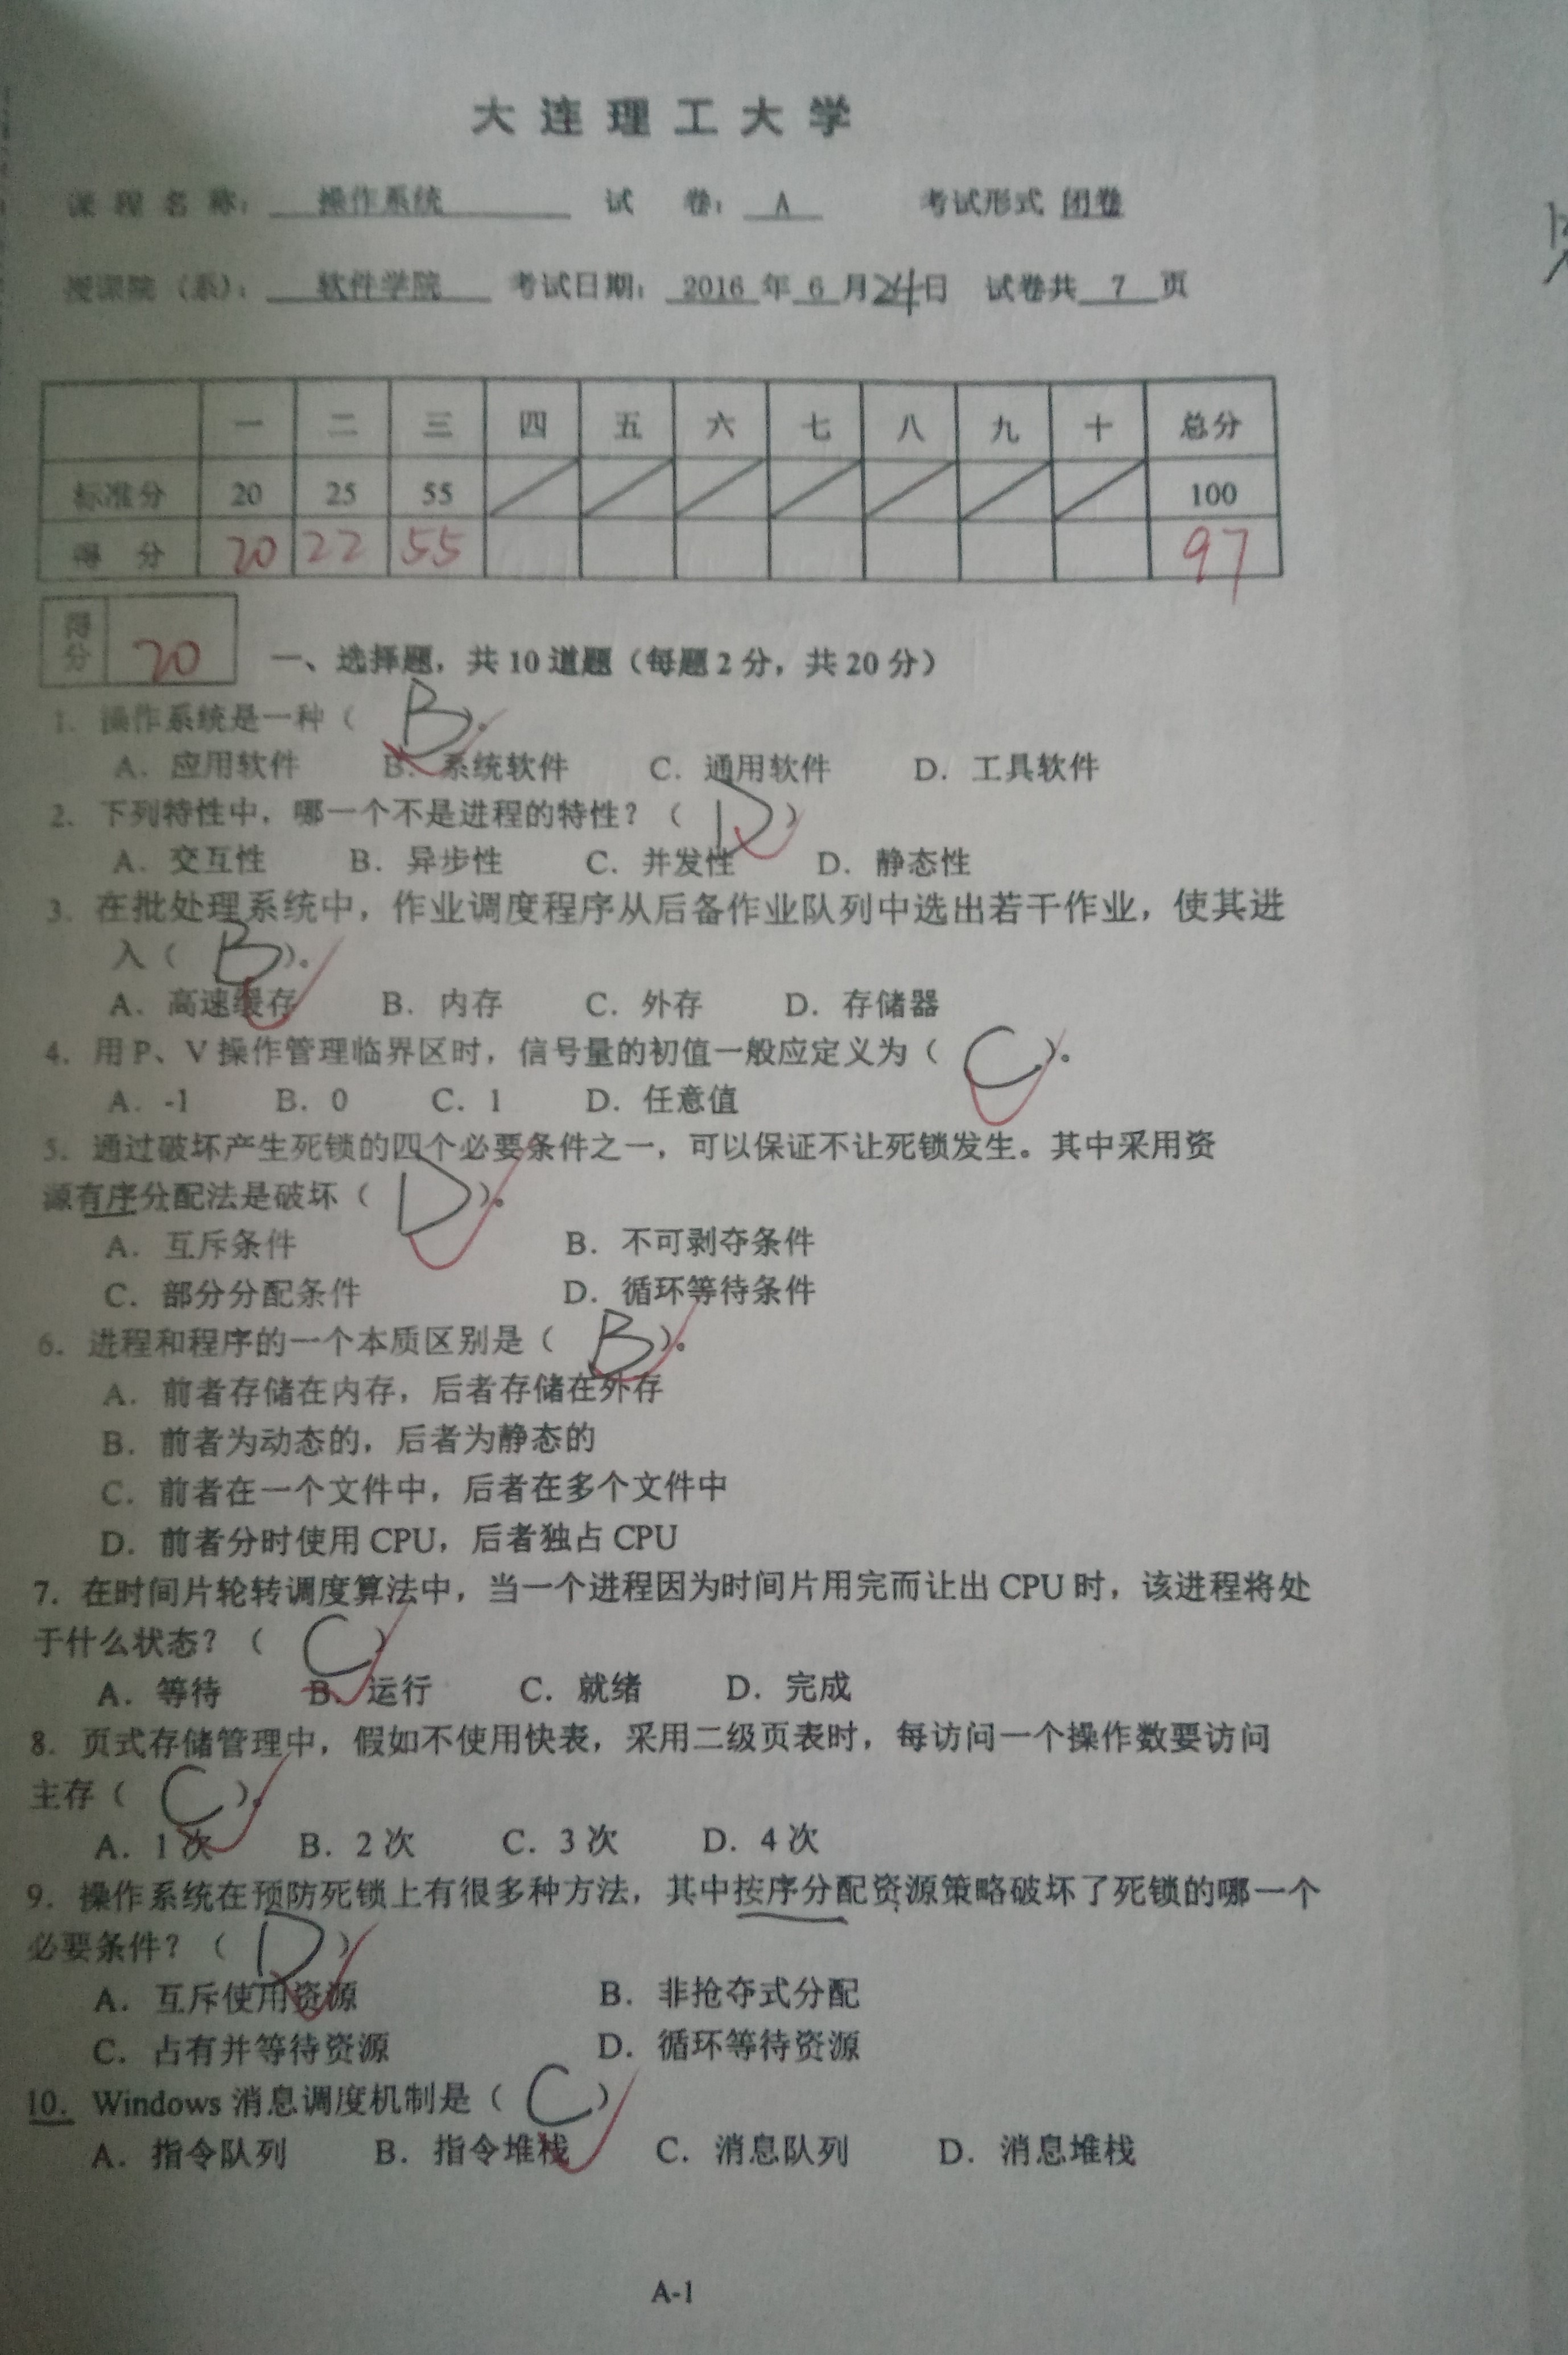 大连理工大学
课程名称： 操作系统 试 卷： A 考试形式 闭卷
授课院（系）： 软件学院 考试日期： 2016 年 6 月 24 日 试卷共 7 页
一 二 三 四 五 六 七 八 九 十 总分
标准分 20 25 55 100
得 分 20 22 55 97
得分 20 一、选择题，共 10 道题（每题 2 分，共 20 分）
1. 操作系统是一种（ B ）。
A. 应用软件 B. 系统软件 C. 通用软件 D. 工具软件
2. 下列特性中，哪一个不是进程的特性？（ D ）
A. 交互性 B. 异步性 C. 并发性 D. 静态性
3. 在批处理系统中，作业调度程序从后备作业队列中选出若干作业，使其进
入（ B ）。
A. 高速缓存 B. 内存 C. 外存 D. 存储器
4. 用 P、V 操作管理临界区时，信号量的初值一般应定义为（ C ）。
A. -1 B. 0 C. 1 D. 任意值
5. 通过破坏产生死锁的四个必要条件之一，可以保证不让死锁发生。其中采用资
源有序分配法是破坏（ D ）。
A. 互斥条件 B. 不可剥夺条件
C. 部分分配条件 D. 循环等待条件
6. 进程和程序的一个本质区别是（ B ）。
A. 前者存储在内存，后者存储在外存
B. 前者为动态的，后者为静态的
C. 前者在一个文件中，后者在多个文件中
D. 前者分时使用 CPU，后者独占 CPU
7. 在时间片轮转调度算法中，当一个进程因为时间片用完而让出 CPU 时，该进程将处
于什么状态？（ C ）
A. 等待 B. 运行 C. 就绪 D. 完成
8. 页式存储管理中，假如不使用快表，采用二级页表时，每访问一个操作数要访问
主存（ C ）。
A. 1 次 B. 2 次 C. 3 次 D. 4 次
9. 操作系统在预防死锁上有很多种方法，其中按序分配资源策略破坏了死锁的哪一个
必要条件？（ D ）
A. 互斥使用资源 B. 非抢夺式分配
C. 占有并等待资源 D. 循环等待资源
10. Windows 消息调度机制是（ C ）
A. 指令队列 B. 指令堆栈 C. 消息队列 D. 消息堆栈
A-1